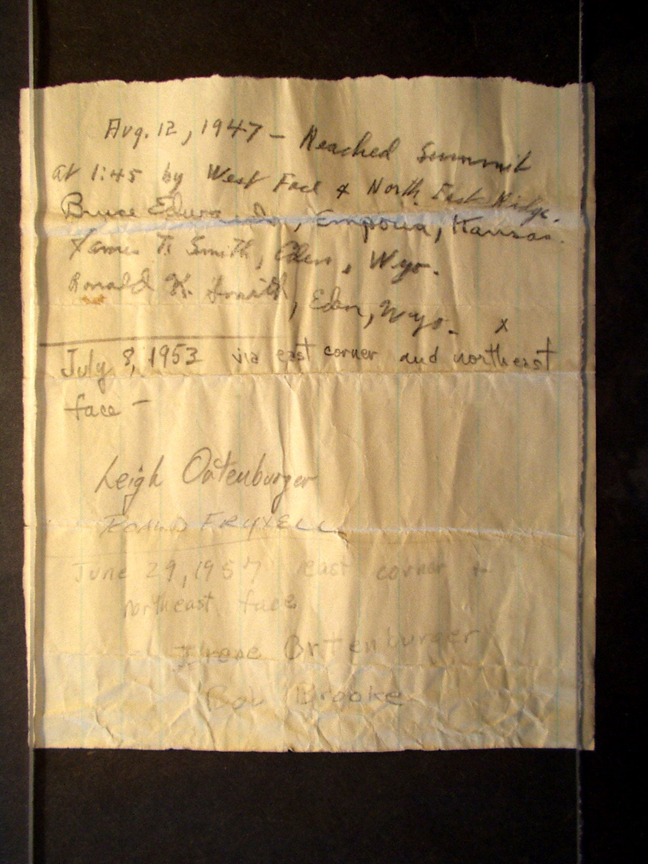 Aug. 12, 1947 – Reached Summit
at 1:45 by West Face & North East Ridge.
Bruce Emporia, Kansas.
James F. Smith, Eden, Wyo.
Ronald K. Smith, Eden, Wyo. x
July 8, 1953 via east corner and northeast
face –
Leigh Ortenburger
Roald Fryxell
June 29, 1957 east corner &
northeast face
Irene Ortenburger
Bob Brooke